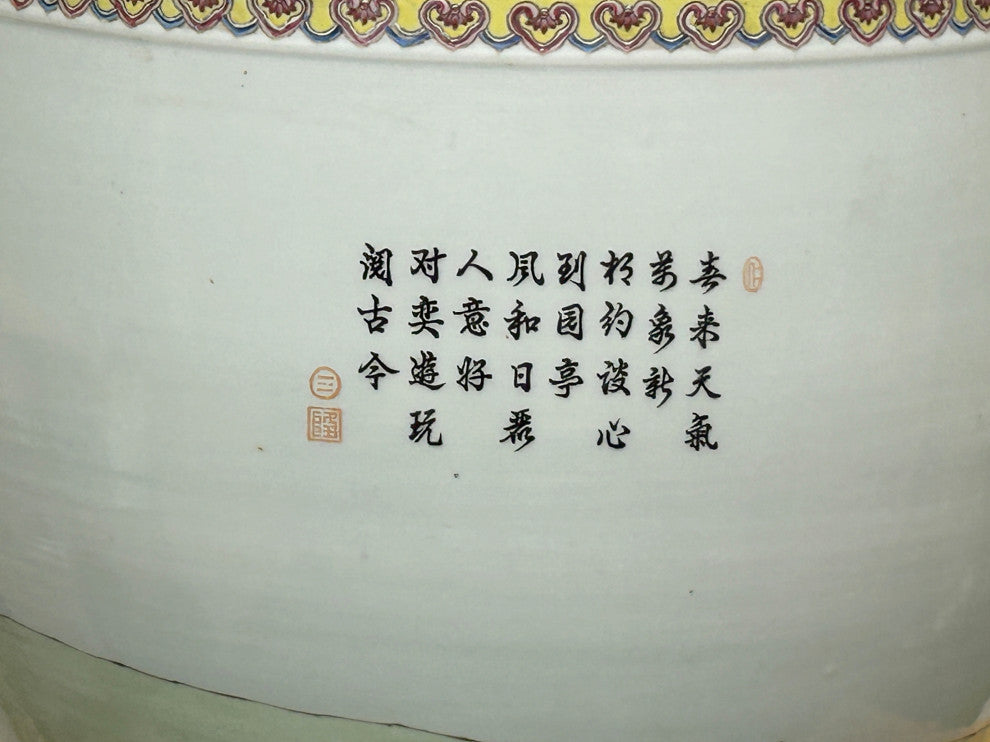 春来天氣
萬象新
相约談心
到园亭
風和日麗
人意好
对奕遊玩
閱古今